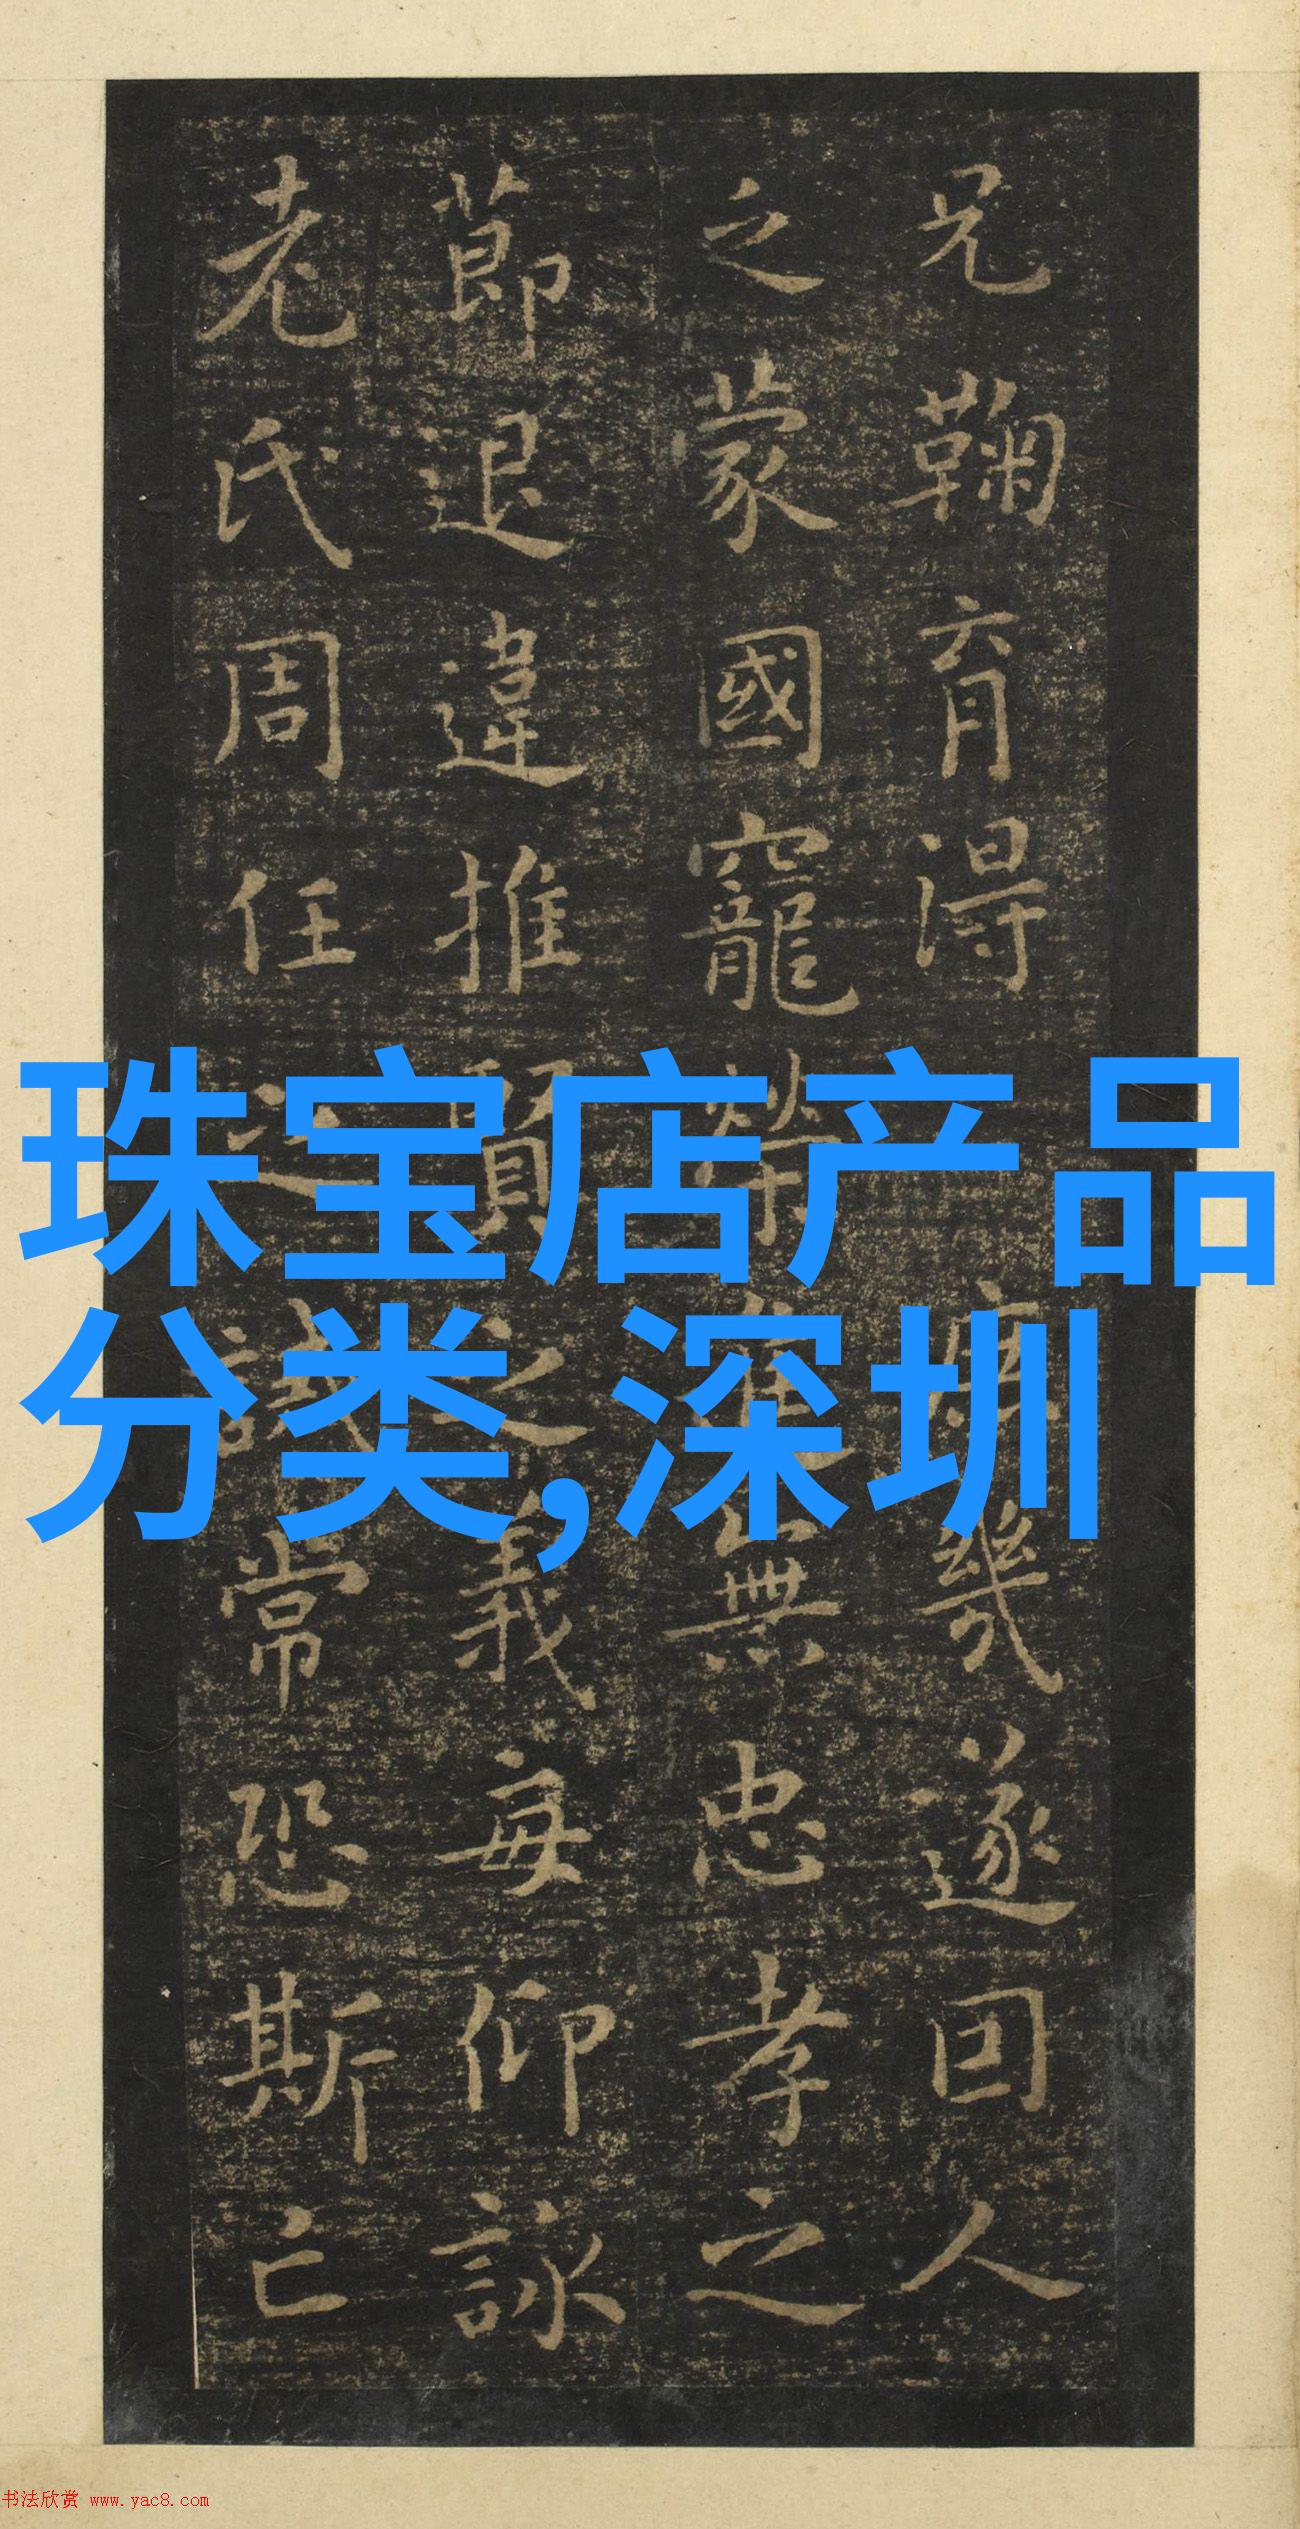 兄鞠育得
康幾遂回人
之蒙國寵榮
無忠孝之
節退違推賢之義每仰詠
老氏周任之誡常恐斯亡
珠宝店产品
分类,深圳
书法欣赏 www.yac8.com